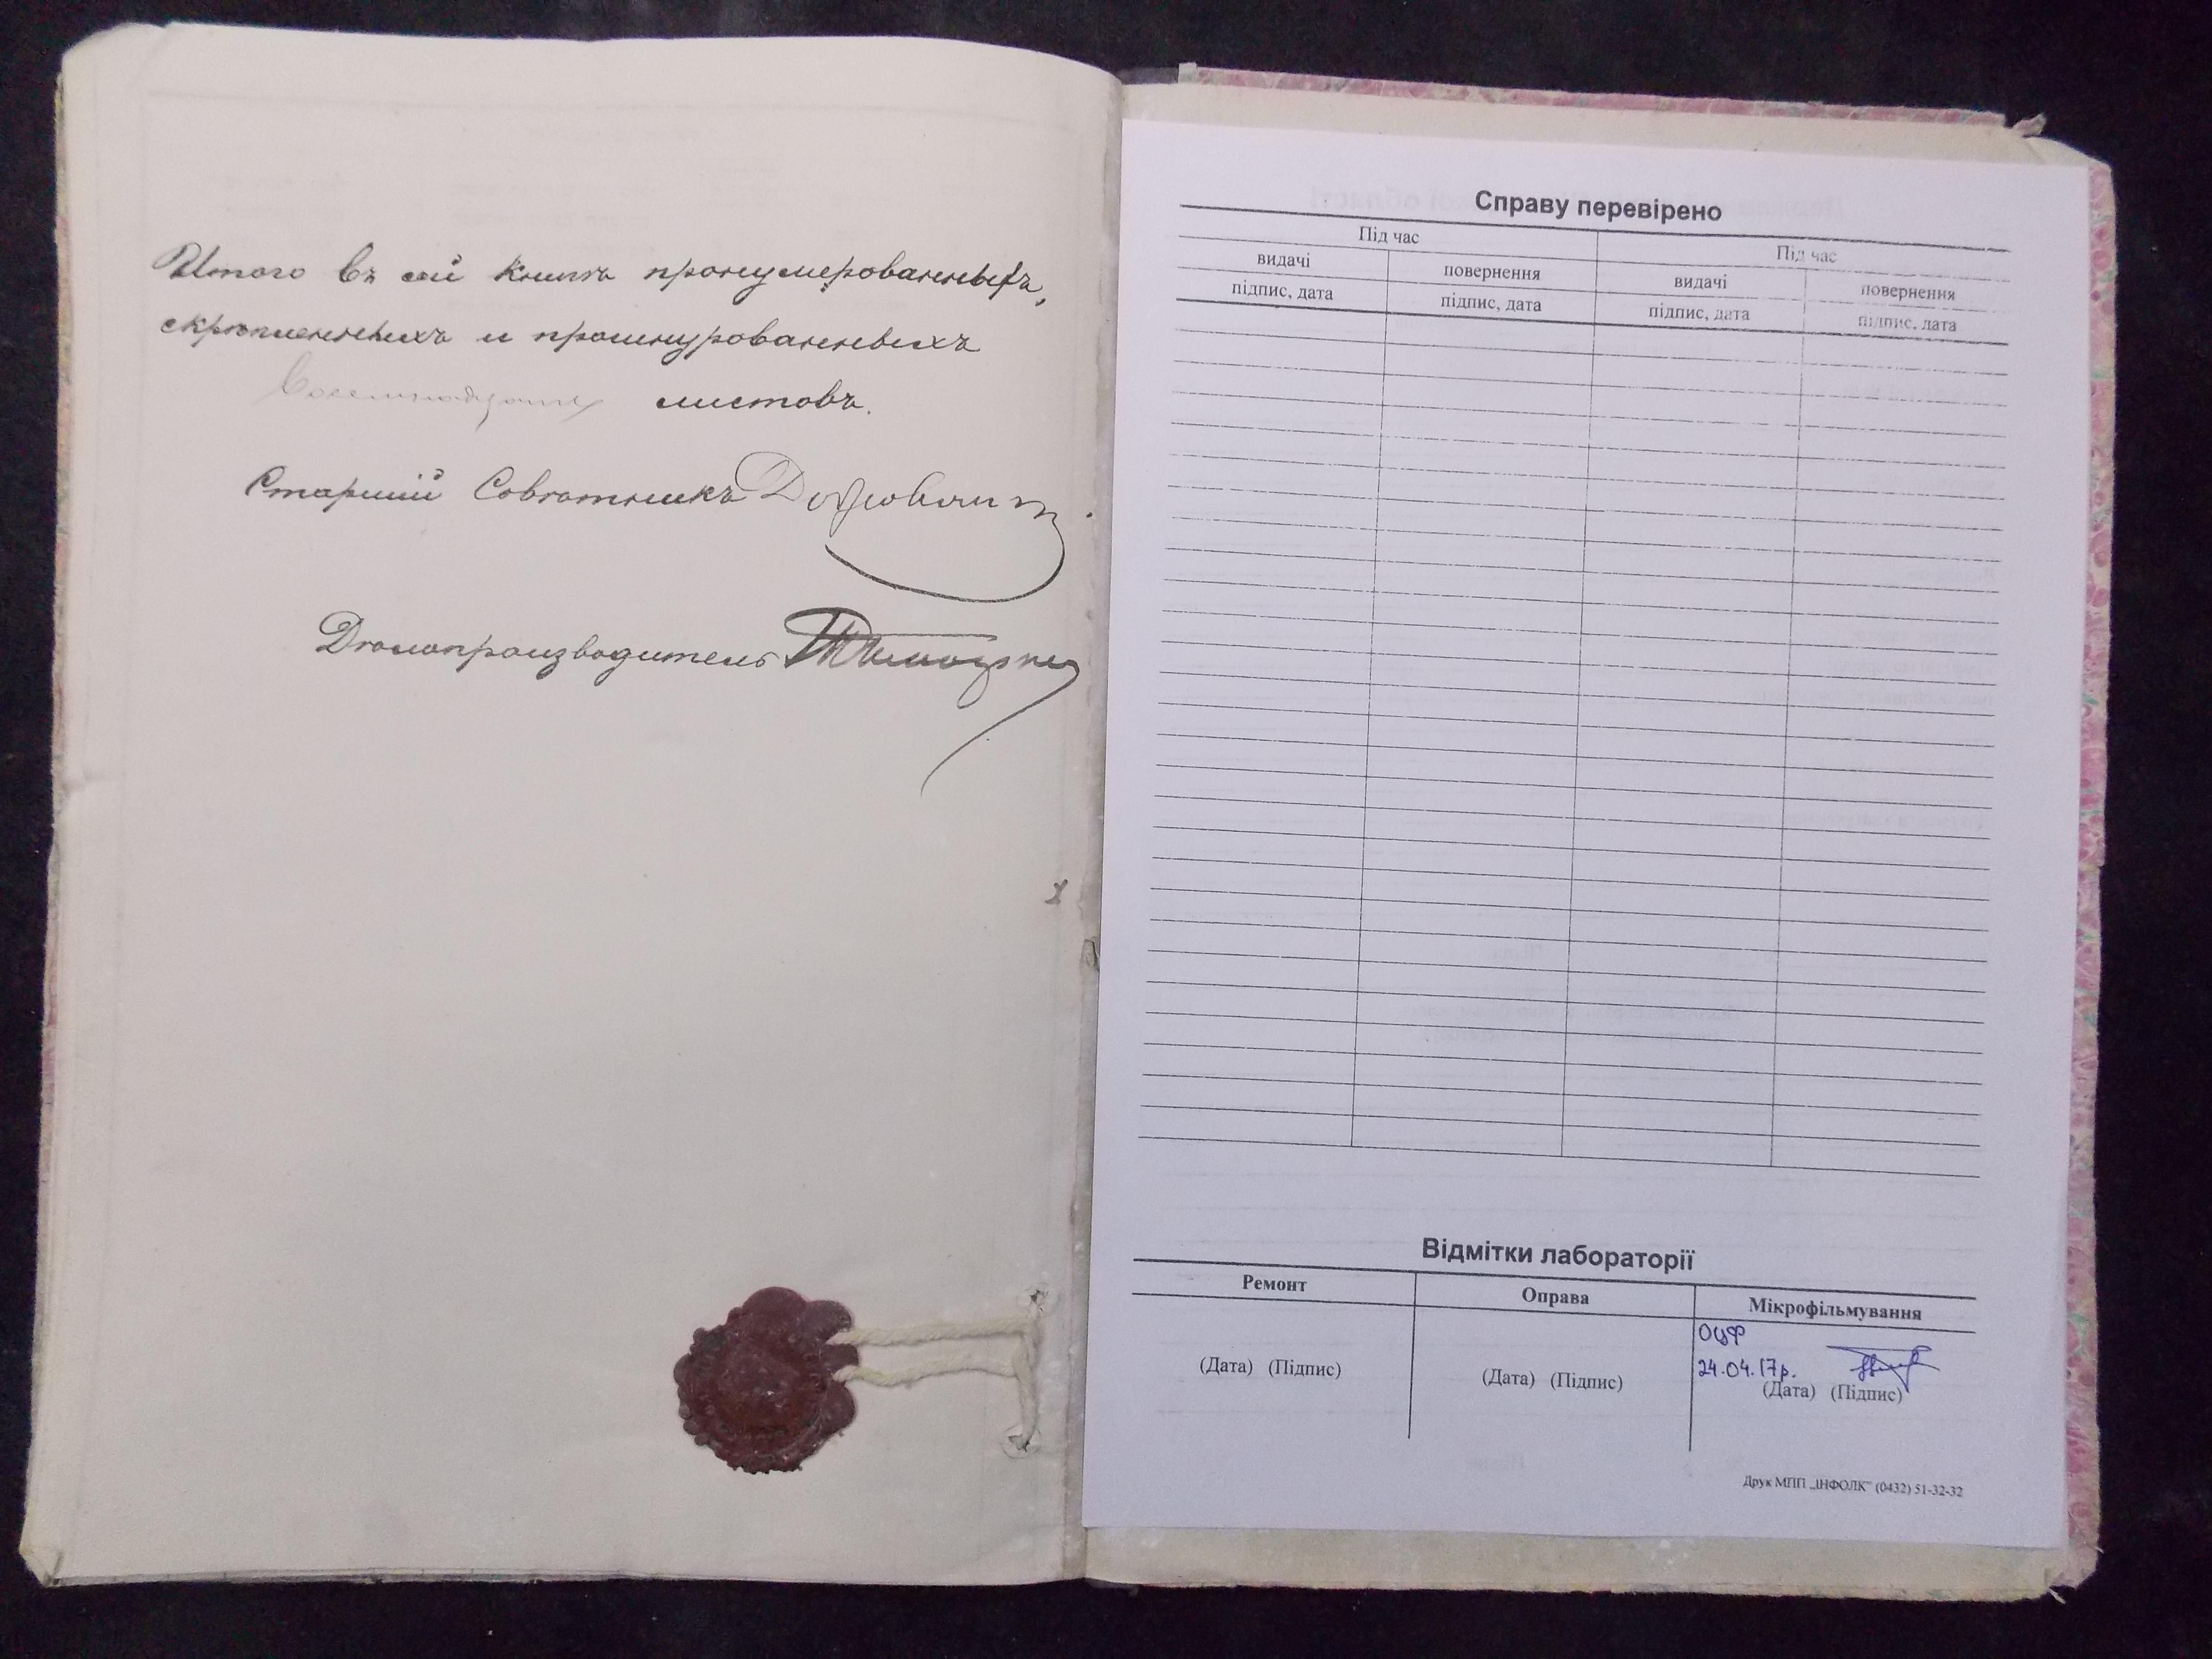 Итого въ сей книгѣ пронумерованныхъ,
скрѣпленныхъ и прошнурованныхъ
листовъ.
Старшій Совѣтникъ
Дѣлопроизводитель
Справу перевірено
Під час
Під час
видачі
повернення
видачі
повернення
підпис, дата
підпис, дата
підпис, дата
підпис, дата
Відмітки лабораторії
Ремонт
Оправа
Мікрофільмування
ОЦФ
24.04.17р.
(Дата) (Підпис)
(Дата) (Підпис)
(Дата) (Підпис)
Друк МПП „ІНФОЛК” (0432) 51-32-32